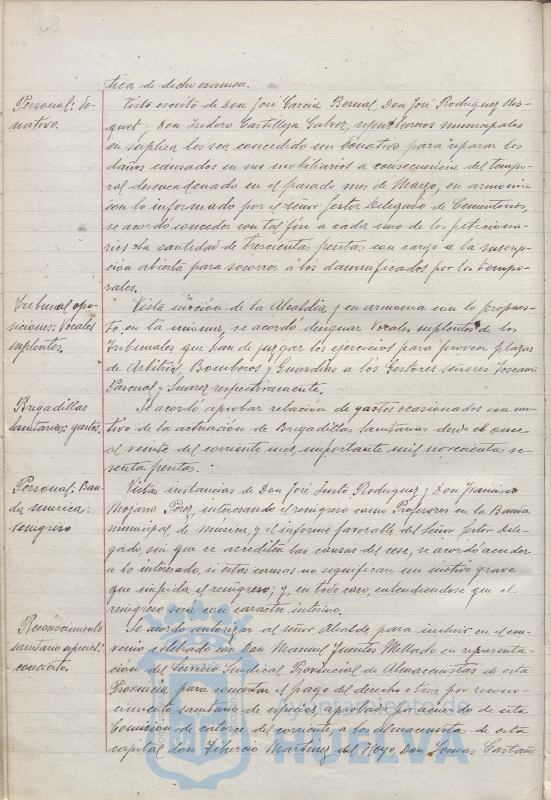 tica de dicho examen.
Personal: Do-
nativo.
Visto escrito de Don José García Bernal, Don José Rodriguez Bos-
quet y Don Isidoro Castilleja Galvez, sepultureros municipales
en suplica les sea concedido un donativo para reparar los
daños causados en sus mobiliarios a consecuencia del tempo-
ral desencadenado en el pasado mes de Marzo, en armonia
con lo informado por el señor Gestor Delegado de Cementerios,
se acordó conceder con tal fin a cada uno de los peticiona-
rios la cantidad de trescientas pesetas con cargo a la suscrip-
cion abierta para socorrer a los damnificados por los tempo-
rales.
Tribunal opo-
siciones: Vocales
suplentes.
Vista mocion de la Alcaldia y en armonia con lo propues-
to en la misma, se acordó designar Vocales suplentes de los
Tribunales que han de juzgar los ejercicios para proveer plazas
de Arbitrios, Bomberos y Guardias a los Gestores señores Toscano
Pascual y Suarez respectivamente.
Brigadillas
sanitarias: gastos.
Se acordó aprobar relacion de gastos ocasionados con mo-
tivo de la actuacion de Brigadillas Sanitarias desde el once
al veinte del corriente mes importante mil novecientas se-
senta pesetas.
Personal: Ban-
da musica:
reingreso
Vistas instancias de Don José Justo Rodriguez y Don Francisco
Mozano Perez, interesando el reingreso como Profesores en la Banda
municipal de música, y el informe favorable del Señor Gestor Dele-
gado, sin que se acrediten las causas del cese, se acordó acceder
a lo interesado, si estas causas no significan un motivo grave
que impida el reingreso; y, en todo caso, entendiendose que el
reingreso será con caracter interino.
Reconocimiento
sanitario especies:
concierto.
Se acordó autorizar al señor Alcalde para incluir en el con-
venio celebrado con Don Manuel Fuentes Mellado en representa-
ción del Servicio Sindical Provincial de Almacenistas de esta
Provincia para concertar el pago del derecho o tasa por recono-
cimiento sanitario de especies, aprobado por acuerdo de esta
Comisión de catorce del corriente, a los almacenistas de esta
capital don Tiburcio Martinez del Hoyo, Don Tomas Castaño
Ayuntamiento de
HUELVA